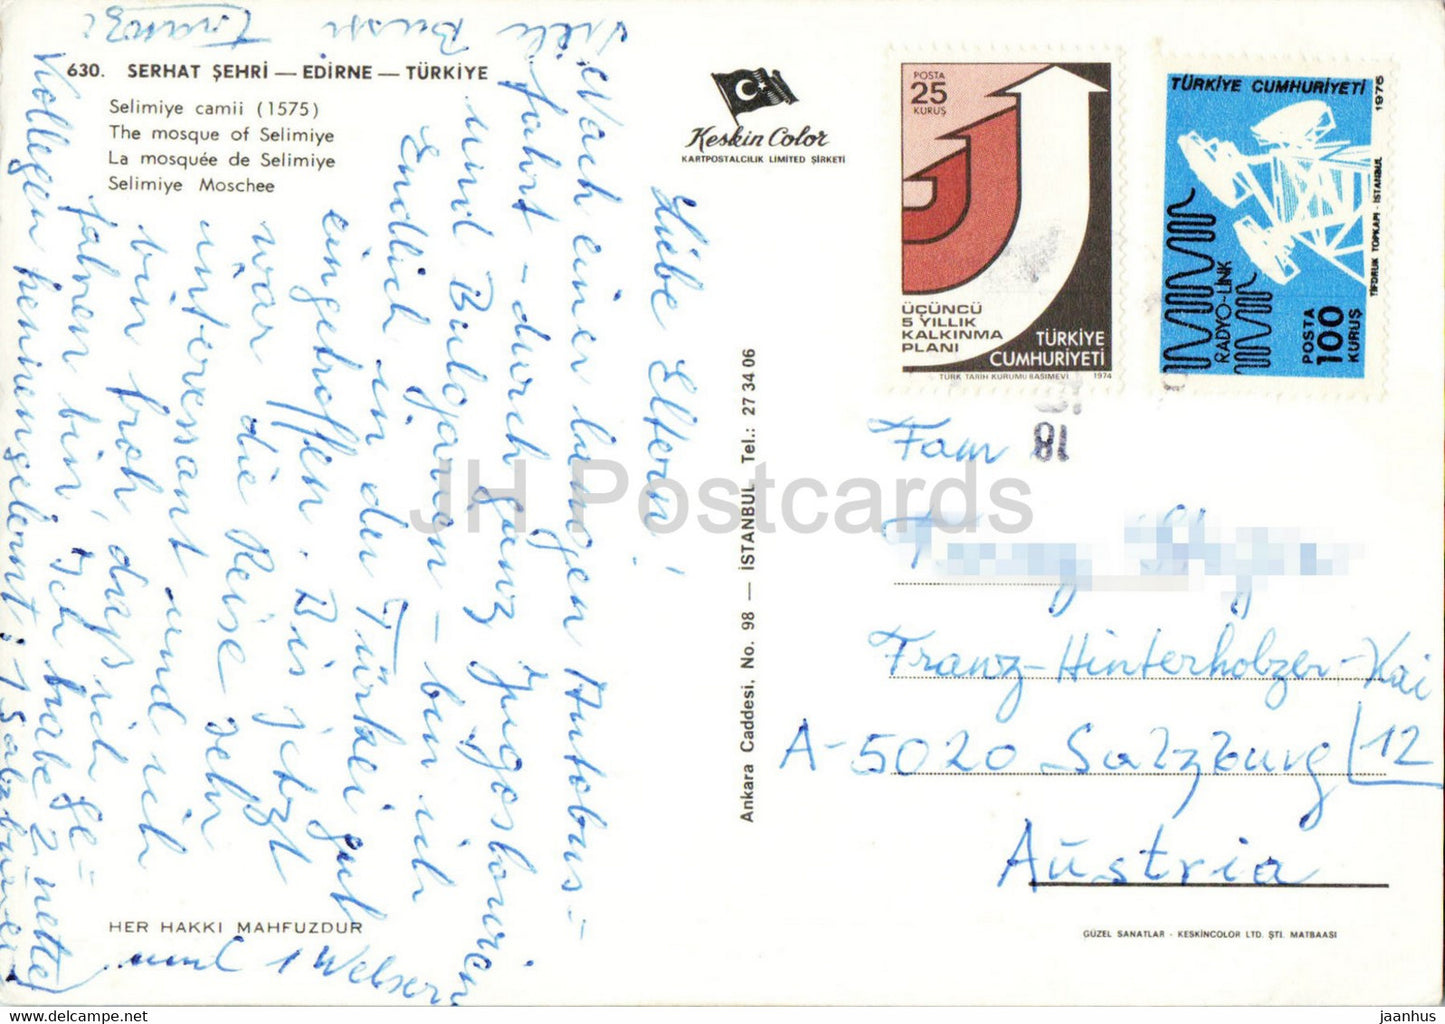 630. SERHAT ŞEHRİ — EDİRNE — TÜRKİYE
Selimiye camii (1575)
The mosque of Selimiye
La mosquée de Selimiye
Selimiye Moschee
Keskin Color
KARTPOSTALCILIK LIMITED ŞİRKETİ
Liebe Eltern!
Nach einer langen Autobus=
fahrt - durch ganz Jugoslawien
und Bulgarien - bin ich
Endlich in der Türkei gut
eingetroffen. Bis jetzt
war die Reise sehr
interessant und ich
bin froh, daß ich ge=
fahren bin. Ich habe 2 nette
Kollegen kennengelernt: 1 Salzburger
und 1 Welser.
Viele Bussi Franzi
HER HAKKI MAHFUZDUR
Ankara Caddesi, No. 98 — İSTANBUL Tel.: 27 34 06
POSTA
25
KURUŞ
ÜÇÜNCÜ
5 YILLIK
KALKINMA
PLANI
TÜRKİYE
CUMHURİYETİ
TÜRK TARİH KURUMU BASIMEVİ 1974
TÜRKİYE CUMHURİYETİ
1976
RADYO-LINK
POSTA
100
KURUŞ
TİFDRUK TOPKAPI - İSTANBUL
18
Fam
Franz-Hinterholzer-Kai
12
A-5020 Salzburg
Austria
GÜZEL SANATLAR - KESKİNCOLOR LTD. ŞTİ. MATBAASI
JH Postcards
https://www.hippostcard.com/store/jaanhus
jaanhus